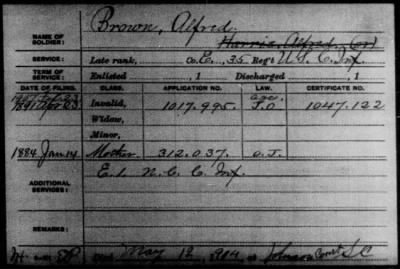 Brown, Alfred.
NAME OF SOLDIER:
Harris, Alfred
SERVICE: Late rank, Co. E, 35 Reg't U.S.C. Inf.
TERM OF SERVICE: Enlisted , 1 Discharged , 1
DATE OF FILING. CLASS. APPLICATION NO. LAW. CERTIFICATE NO.
Invalid, 1017.995. 1047.122
Widow,
Minor,
1884 Jan 14 Mother 312.037. O.J.
ADDITIONAL SERVICES: E. 1. N.C.C. Inf
REMARKS:
May 12, 1914, at S.C